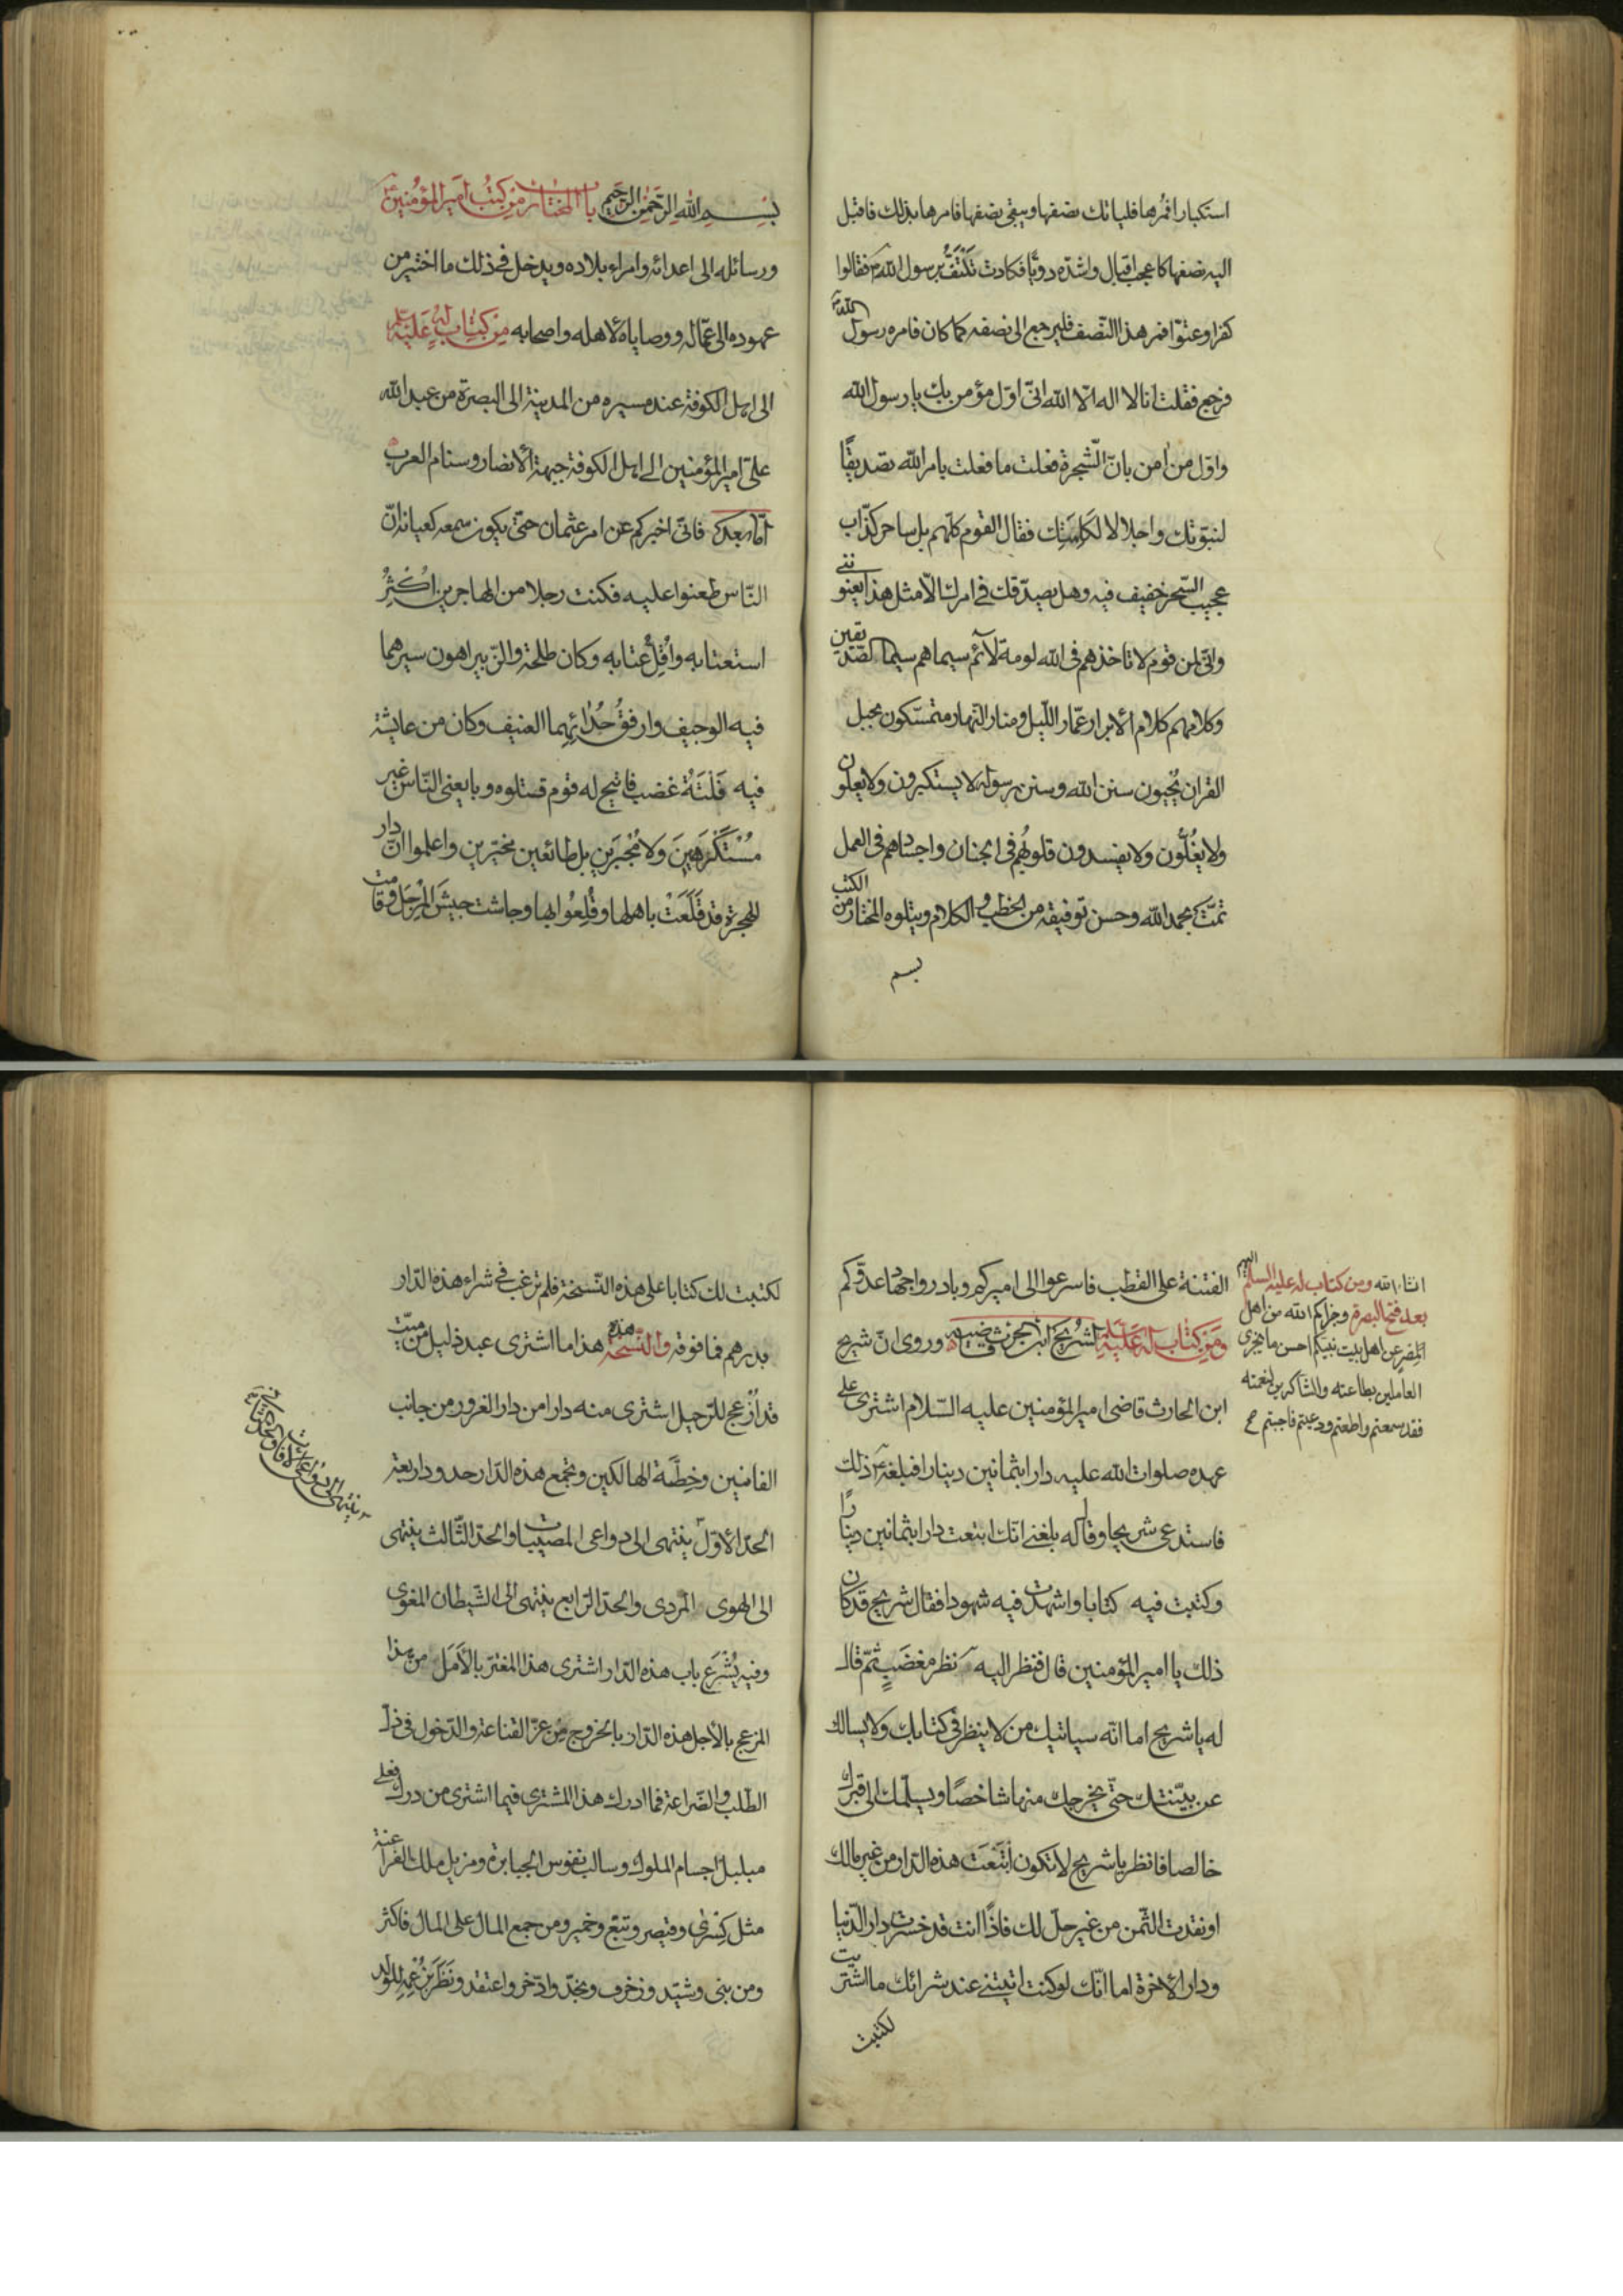 استكبارا فمرها فلياتك نصفها ويبقى نصفها فامرها بذلك فاقبل
اليه نصفها كاعجب اقبال واشدّه دويّا فكادت تَلْتَفُّ برسول الله ص فقالوا
كفرا وعتوّا فمر هذا النّصف فليرجع الى نصفه كما كان فامره رسول الله ص
فرجع فقلت انا لا اله الّا الله انّى اوّل مؤمن بك يا رسول الله
واوّل من امن بانّ الشّجرة فعلت ما فعلت بامر الله تصديقًا
لنبوّتك واجلالا لكلمتك فقال القوم كلّهم بل ساحر كذّاب
عجيب السّحر خفيف فيه وهل يصدّقك فى امرك الّا مثل هذا يعنوننى
وانّى لمن قوم لا تاخذهم فى الله لومة لآئم سيماهم سيما الصّدّيقين
وكلامهم كلام الأبرار عمّار اللّيل ومنار النّهار متمسّكون بحبل
القران يُحيون سنن الله وسنن رسوله لا يستكبرون ولا يعلون
ولا يغُلّون ولا يفسدون قلوبُهم فى الجنان واجسادهم فى العمل
تمّت بحمد الله وحسن توفيقه من الخطب و الكلام ويتلوه المختار من الكتب
بسم
بِسْمِ اللهِ الرَّحْمٰنِ الرَّحِيمِ باب المختار من كتب امير المؤمنين ع
ورسائله الى اعدائه وامراء بلاده ويدخل فى ذلك ما اختير من
عهوده الى عمّاله ووصاياه لاهله واصحابه من كِتابٍ لهُ عَليْه
الى اهل الكوفة عند مسيره من المدينة الى البصرة من عبد الله
علىّ امير المؤمنين الى اهل الكوفة جبهة الأنصار وسنام العرب
امّا بعد فانّى اخبركم عن امر عثمان حتّى يكون سمعه كعيانه انّ
النّاس طعنوا عليه فكنت رجلا من المهاجرين اُكْثِرُ
استعتابه واُقِلُّ عتابه وكان طلحة والزّبير اهون سيرهما
فيه الوجيف وارفقُ حُدائِهِما العنيف وكان من عايشة
فيه فَلْتَةُ غضب فاتيح له قوم قتلوه وبايعنى النّاس غير
مُسْتَكْرَهِينَ وَلا مُجْبَرَين بل طائعين مخيّرين واعلموا انّ دار
الهجرة قد قَلَعَتْ باهلها وقُلِعُوا بها وجاشت جيشَ المْرجَل وقامت
الفتنة على القطب فاسرعوا الى اميركم وبادروا جهاد عدوّكم
انشاء الله ومن كتاب له عليه السلم اليهم
بعد فتح البصرة وجزاكم الله من اهل
المِصْرِ عن اهل بيت نبيّكم احسن ما يجزى
العاملين بطاعته والشّاكرين لنعمته
فقد سمعتم واطعتم ودعيتم فاجبتم
ومِن كِتاب له عَليْه لشُرَيح ابن الحرث قاضيه وروى انّ شريح
ابن الحارث قاضى امير المؤمنين عليه السّلام اشترى على
عهده صلوات الله عليه دارا بثمانين دينارا فبلغه ع ذلك
فاستدعى شريحا وقال له بلغنى انّك ابتعت دارا بثمانين دينارًا
وكتبت فيه كتابا واشهدت فيه شهودا فقال شريح قد كان
ذلك يا امير المؤمنين قال فنظر اليه نظر مغضَبٍ ثمّ قال
له يا شريح اما انّه سياتيك من لا ينظر فى كتابك ولا يسالك
عن بيّنتك حتّى يخرجك منها شاخصًا ويسلّمك الى قبرك
خالصا فانظر يا شريح لا تكون ابْتَعَتَ هذه الدّار من غير مالك
او نقدت الثّمن من غير حلّ لك فاذًا انت قد خسرت دار الدّنيا
ودار الأخرة اما انّك لو كنت اتيتنى عند شرائك ما اشتريت
لكتبت
لكتبت لك كتابا على هذه النّسخة فلم ترغب فى شراء هذه الدّار
بدرهم فما فوقه والنّسخة هذه هذا ما اشترى عبد ذليل من ميّت
قد اُزْعج للرّحيل اشترى منه دارا من دار الغرور من جانب
الفانين وخِطّة الهالكين وتجمع هذه الدّار حدود اربعة
الحدّ الأوّل ينتهى الى دواعى المصيبات والحدّ الثّالث ينتهى
الى الهوى المردى والحدّ الرّابع ينتهى الى الشّيطان المغوى
وفيه يُشْرَع باب هذه الدّار اشترى هذا المغترّ بالأَمَل من هذا
المزعج بالأجل هذه الدّار بالخروج مِن عزّ القناعة والدّخول فى ذلّ
الطّلب والضّراعة فما ادرك هذا المشترى فيما اشترى من درك فعلى
مبلبل اجسام الملوك وسالب نفوس الجبابرة ومزيل ملك الفراعنة
مثل كِسْرٰى وقيصر وتبّع وحمير ومن جمع المال على المال فاكثر
ومن بنى وشيّد وزخرف ونجّد وادّخر واعتقد ونَظَرَ بِزُعْمِهِ للولد